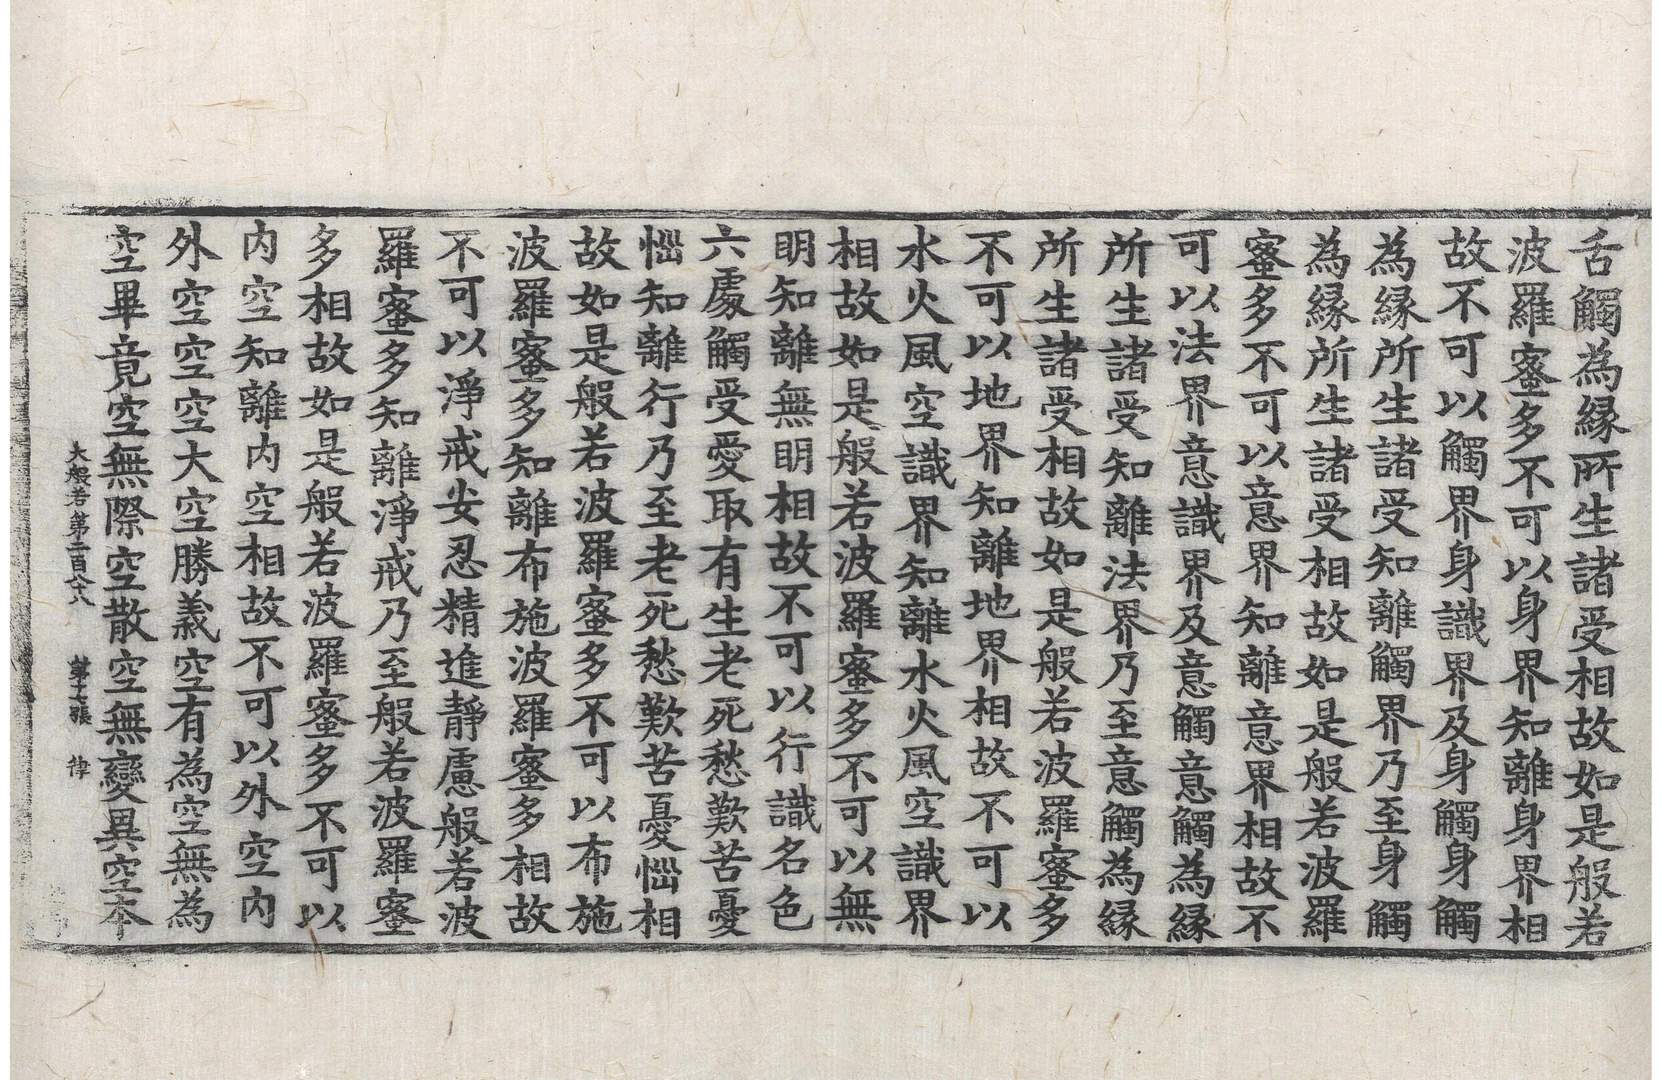 舌觸為縁所生諸受相故如是般若
波羅蜜多不可以身界知離身界相
故不可以觸界身識界及身觸身觸
為縁所生諸受知離觸界乃至身觸
為縁所生諸受相故如是般若波羅
蜜多不可以意界知離意界相故不
可以法界意識界及意觸意觸為縁
所生諸受知離法界乃至意觸為縁
所生諸受相故如是般若波羅蜜多
不可以地界知離地界相故不可以
水火風空識界知離水火風空識界
相故如是般若波羅蜜多不可以無
明知離無明相故不可以行識名色
六處觸受愛取有生老死愁歎苦憂
惱知離行乃至老死愁歎苦憂惱相
故如是般若波羅蜜多不可以布施
波羅蜜多知離布施波羅蜜多相故
不可以淨戒安忍精進靜慮般若波
羅蜜多知離淨戒乃至般若波羅蜜
多相故如是般若波羅蜜多不可以
內空知離內空相故不可以外空內
外空空空大空勝義空有為空無為
空畢竟空無際空散空無變異空本
大般若第二百九十八 第十張 律